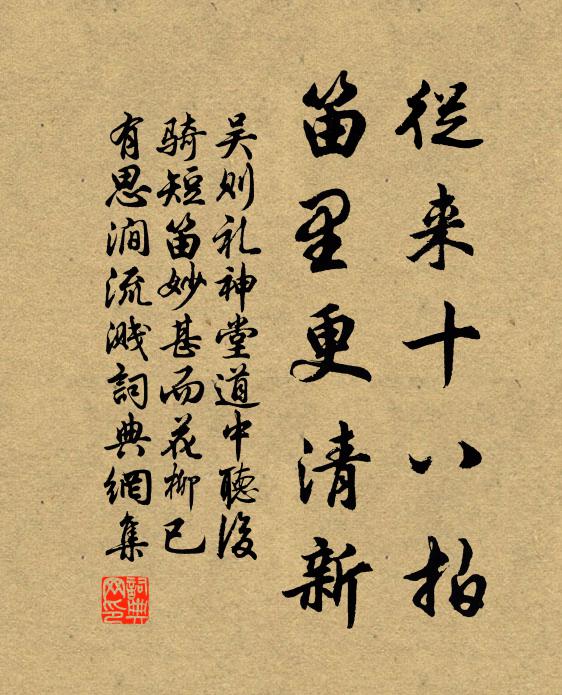 從来十八拍
笛里更清新
吴则礼神堂道中聽後
骑短笛妙甚而花柳已
有思涧流溅詞典網集
詞典
网印